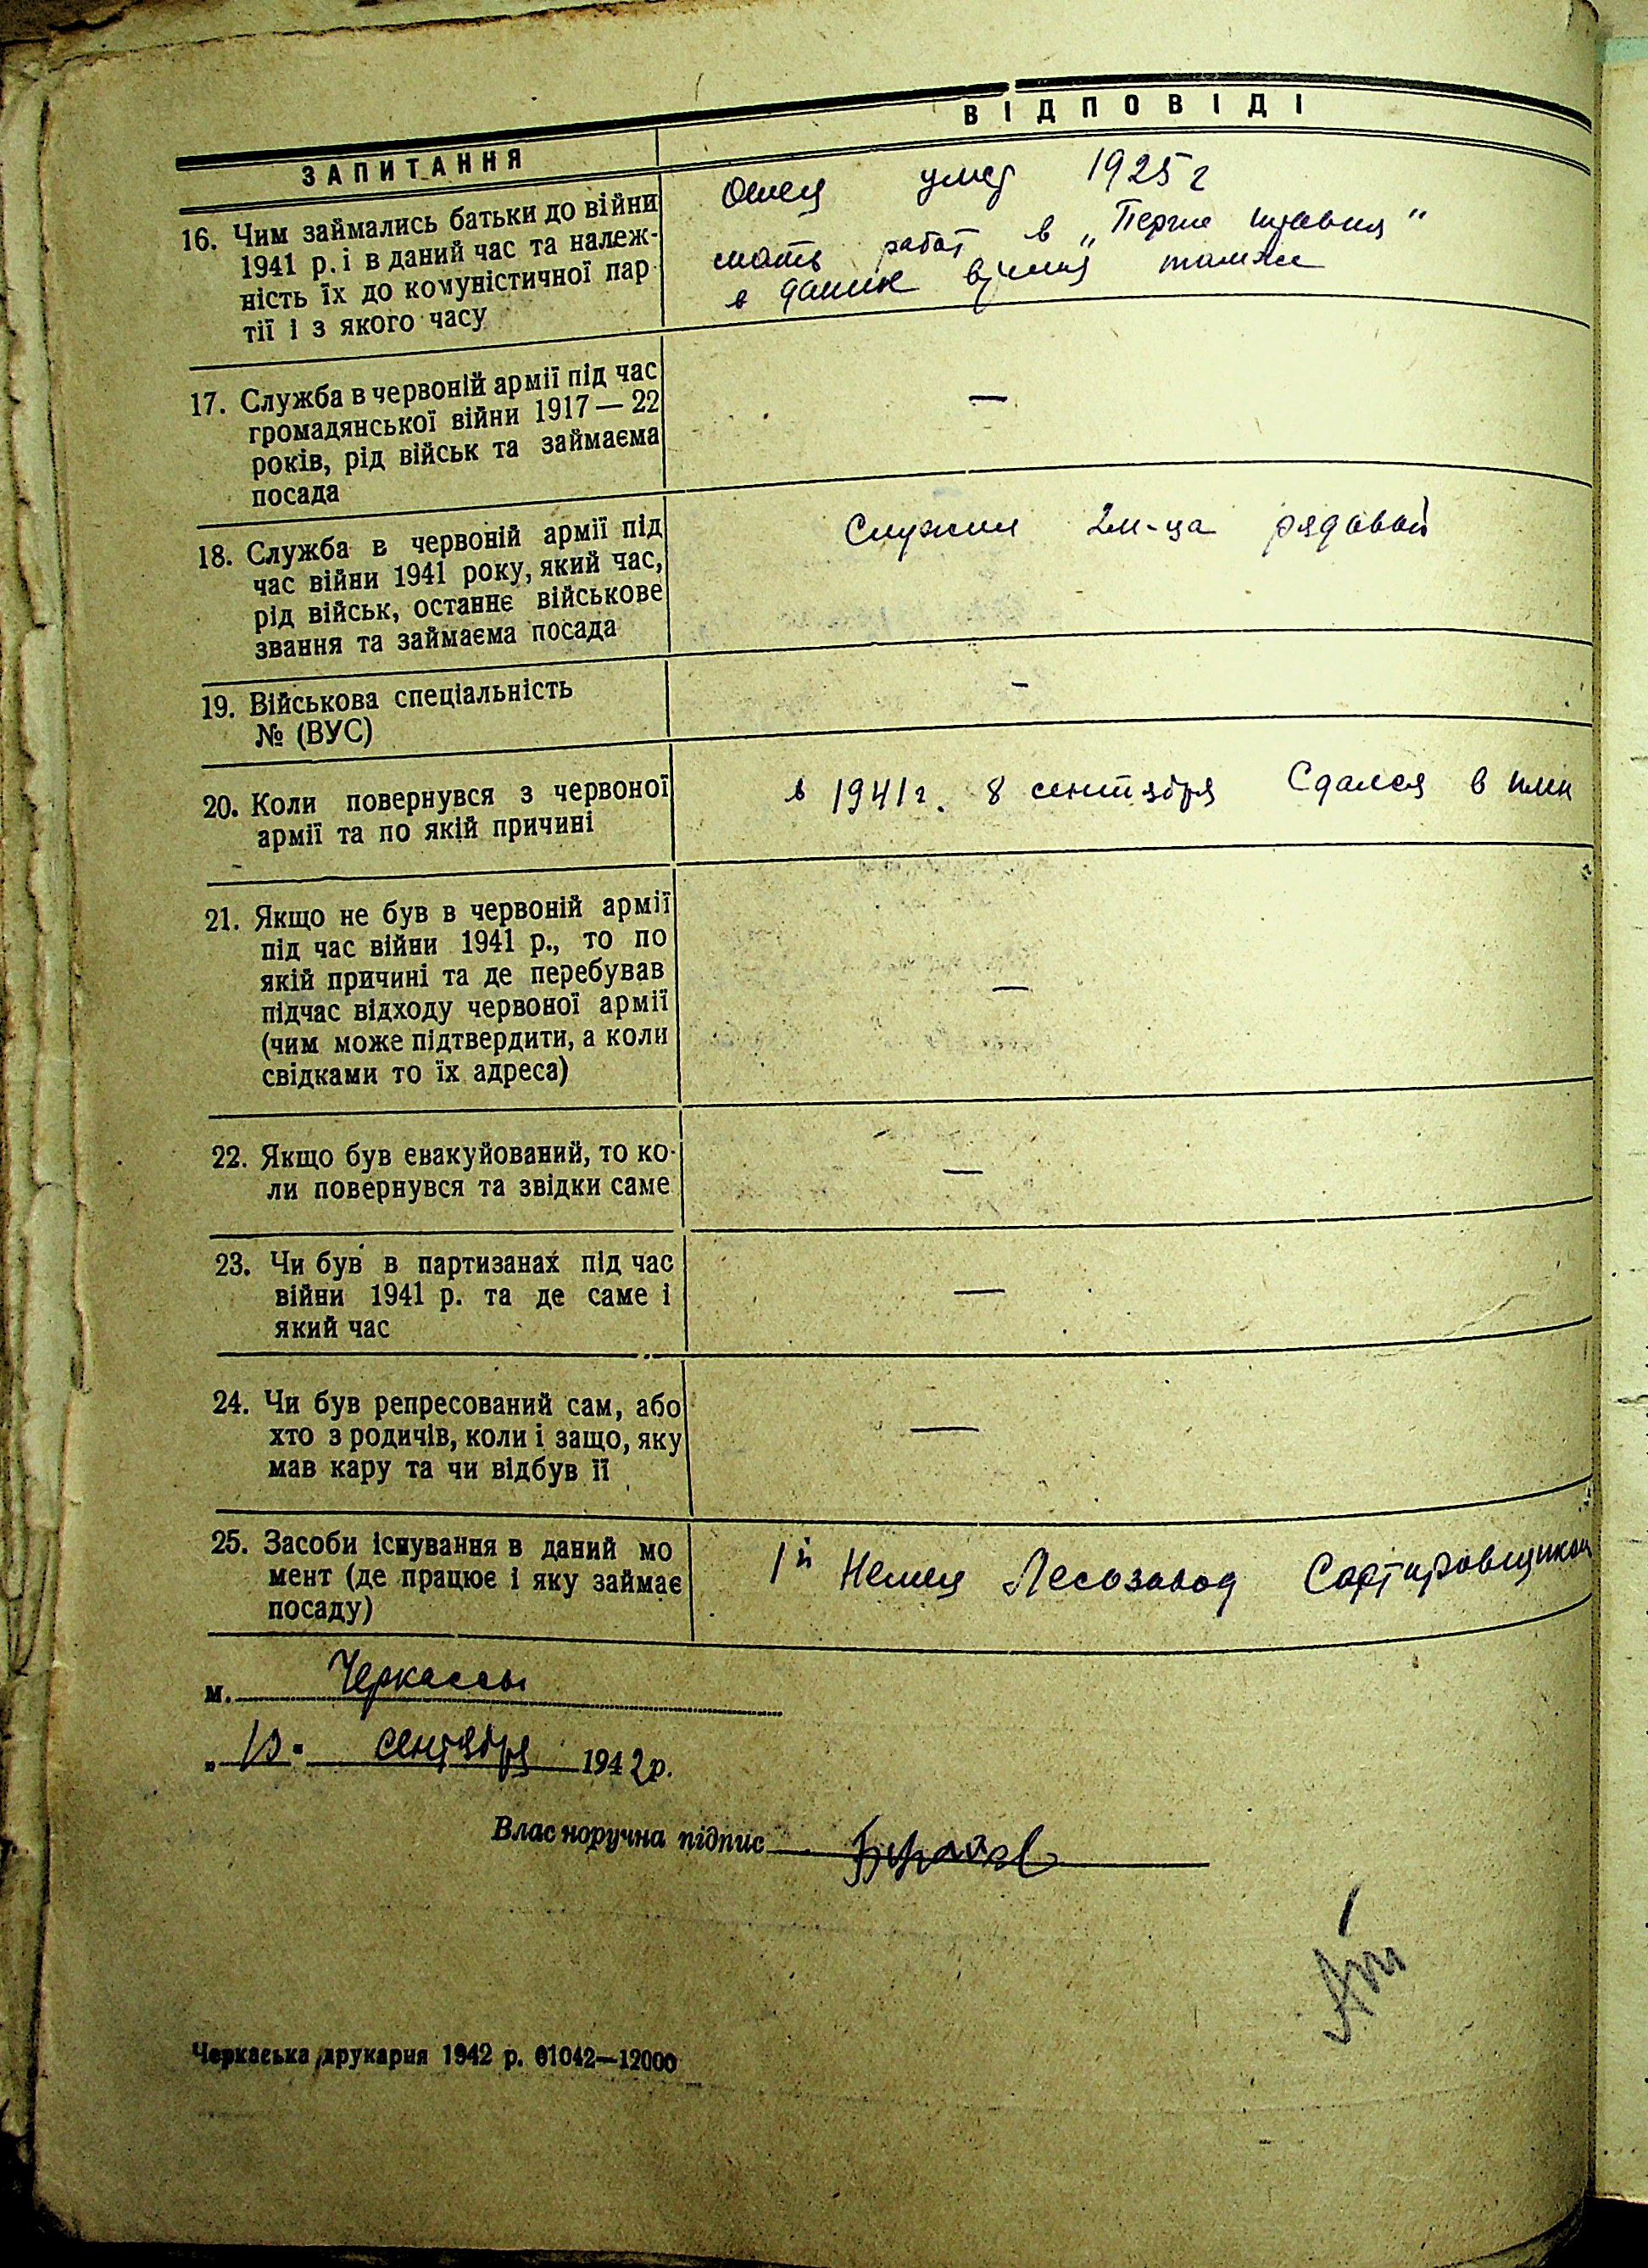 ЗАПИТАННЯ
ВІДПОВІДІ
16. Чим займались батьки до війни
1941 р. і в даний час та належ-
ність їх до комуністичної пар
тії і з якого часу
Отец умер 1925 г
мать работ в „Перше травня“
в даное время также
17. Служба в червоній армії під час
громадянської війни 1917—22
років, рід військ та займаєма
посада
—
18. Служба в червоній армії під
час війни 1941 року, який час,
рід військ, останнє військове
звання та займаєма посада
Служил 2м-ца рядовой
19. Військова спеціальність
№ (ВУС)
-
20. Коли повернувся з червоної
армії та по якій причині
в 1941г. 8 сентября Сдался в плен
21. Якщо не був в червоній армії
під час війни 1941 р., то по
якій причині та де перебував
підчас відходу червоної армії
(чим може підтвердити, а коли
свідками то їх адреса)
—
22. Якщо був евакуйований, то ко-
ли повернувся та звідки саме
—
23. Чи був в партизанах під час
війни 1941 р. та де саме і
який час
—
24. Чи був репресований сам, або
хто з родичів, коли і защо, яку
мав кару та чи відбув її
—
25. Засоби існування в даний мо
мент (де працює і яку займає
посаду)
1й Немец Лесозавод Сортировщиком
м. Черкассы
сентября 1942р.
Власноручна підпис
Черкаська друкарня 1942 р. 01042—12000